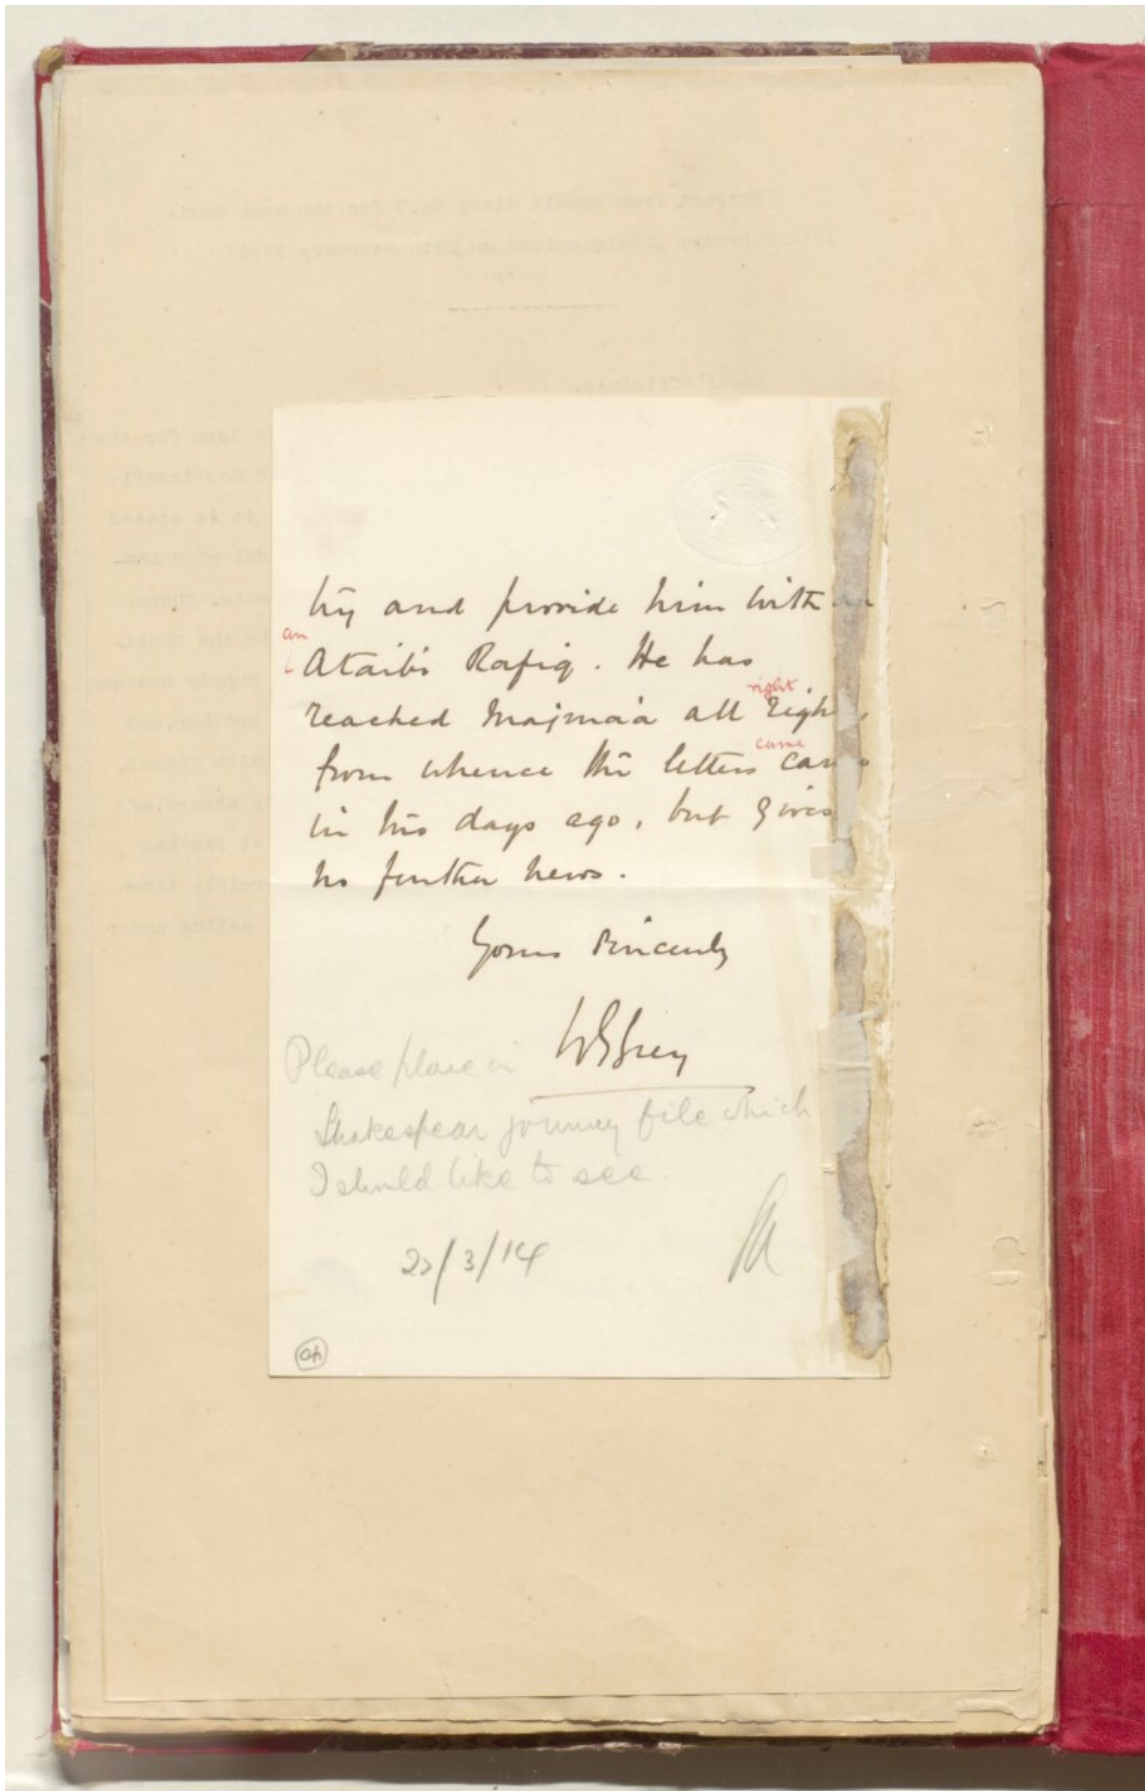 try and provide him with an
an
Ataibi Rafiq. He has
right
reached Majma'a all right,
came
from whence the letters came
in two days ago, but gives
no further news.
Yours sincerely
WGGrey
Please place in
Shakespear journey file which
I should like to see
/3/14
40